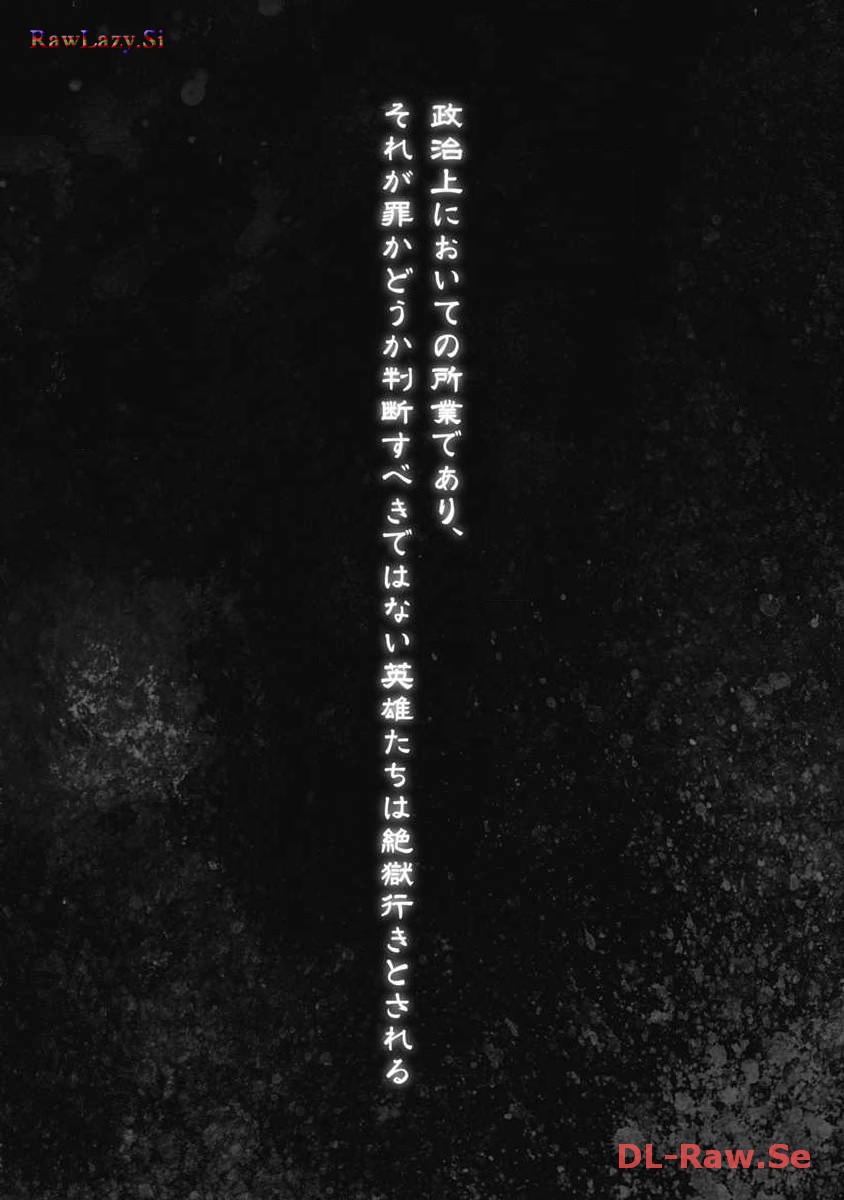 RawLazy.Si
政治上においての所業であり、
それが罪かどうか判断すべきではない英雄たちは絶獄行きとされる
DL-Raw.Se